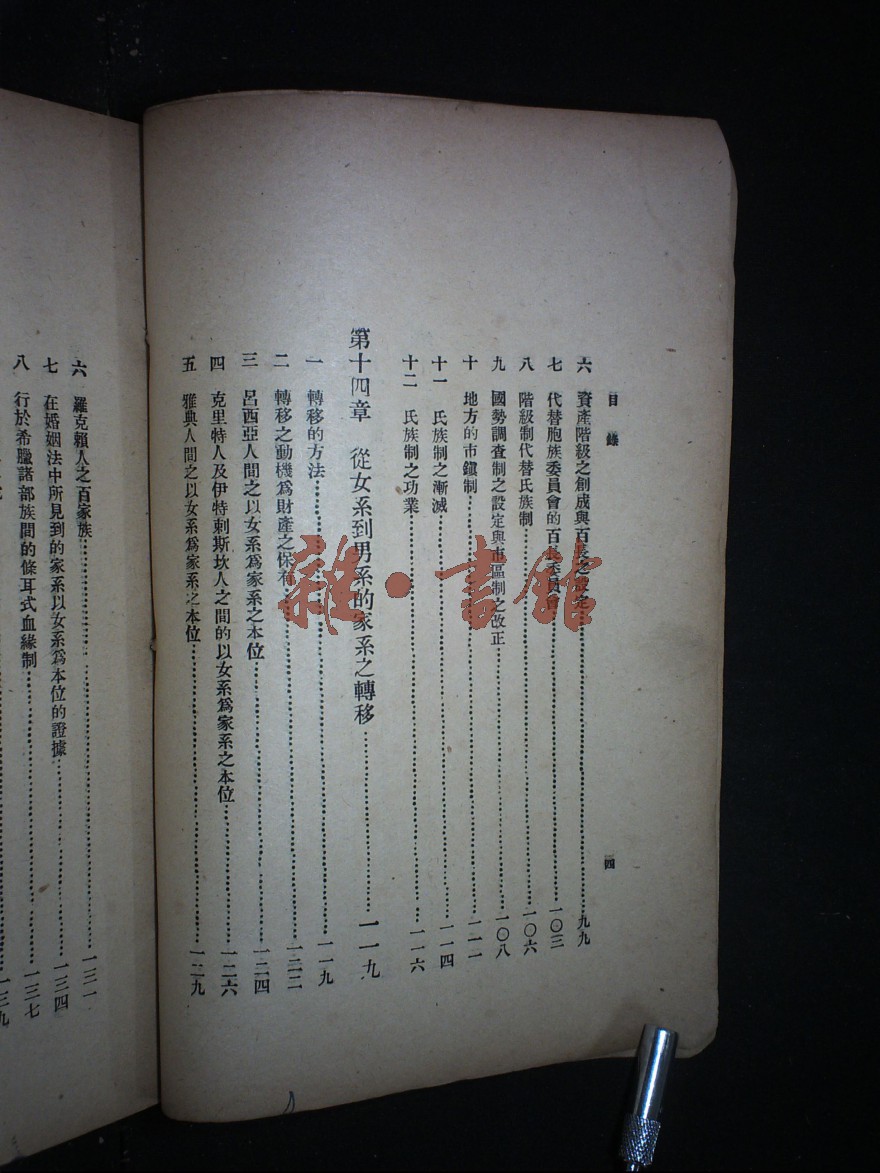 目錄
四
六 資產階級之創成與百長之設定 九九
七 代替胞族委員會的百長委員會 一〇三
八 階級制代替氏族制 一〇六
九 國勢調查制之設定與市區制之改正 一〇八
十 地方的市鎮制 一一一
十一 氏族制之漸滅 一一四
十二 氏族制之功業 一一六
第十四章 從女系到男系的家系之轉移 一一九
一 轉移的方法 一一九
二 轉移之動機爲財產之保有 一二二
三 呂西亞人間之以女系爲家系之本位 一二四
四 克里特人及伊特剌斯坎人之間的以女系爲家系之本位 一二六
五 雅典人間之以女系爲家系之本位 一二九
六 羅克賴人之百家族 一三一
七 在婚姻法中所見到的家系以女系爲本位的證據 一三四
八 行於希臘諸部族間的條耳式血緣制 一三七
一三九
雜·書館